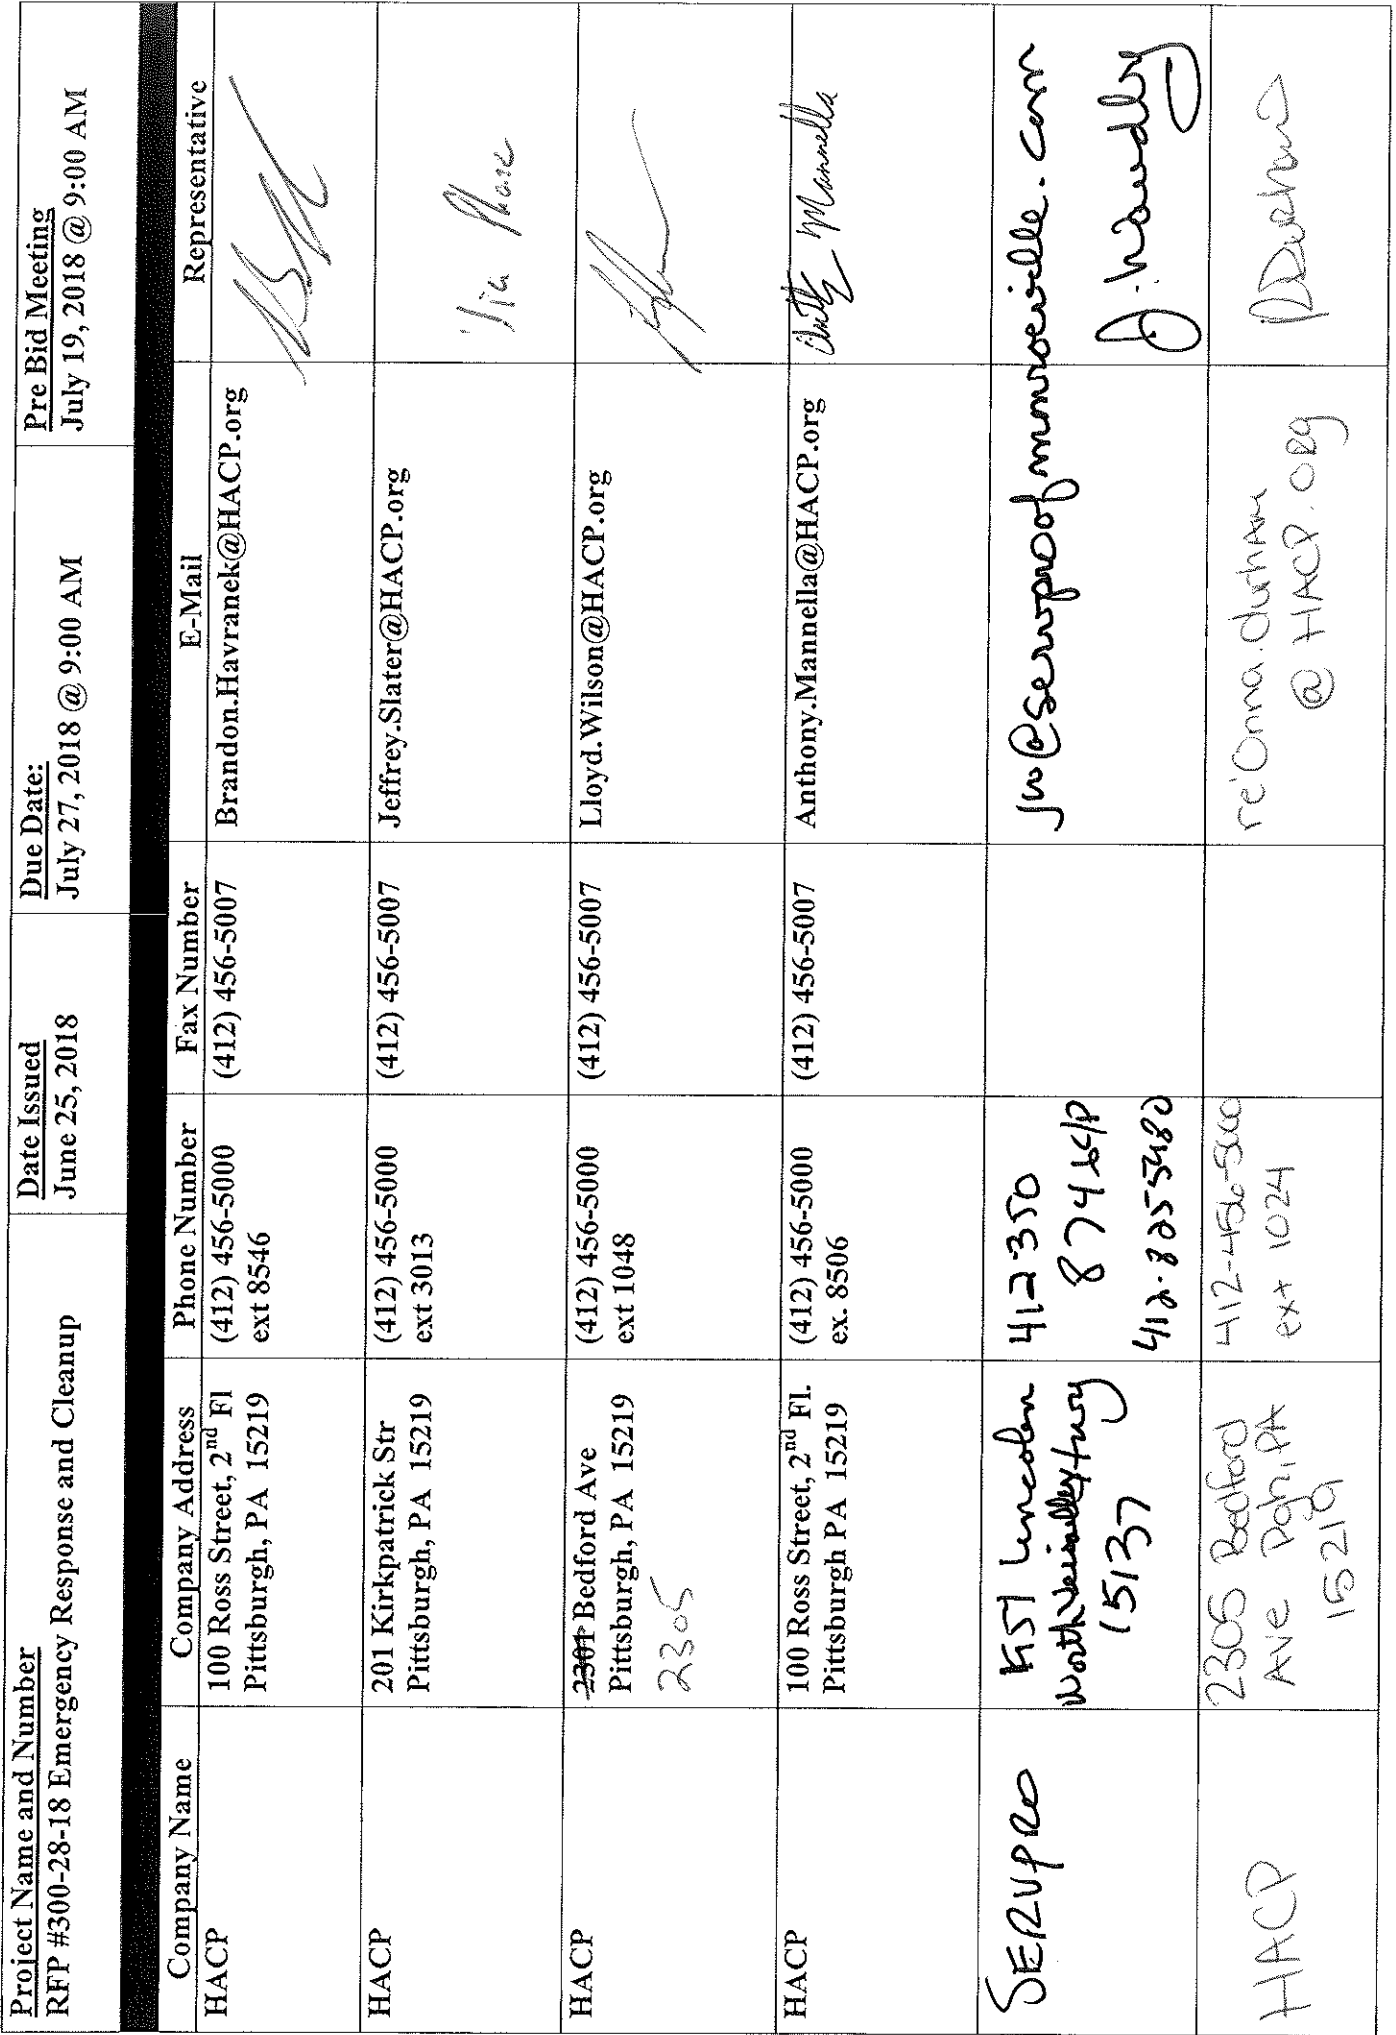 Project Name and Number
RFP #300-28-18 Emergency Response and Cleanup
Date Issued
June 25, 2018
Due Date:
July 27, 2018 @ 9:00 AM
Pre Bid Meeting
July 19, 2018 @ 9:00 AM
Company Name Company Address Phone Number Fax Number E-Mail Representative
HACP
100 Ross Street, 2nd Fl
Pittsburgh, PA 15219
(412) 456-5000
ext 8546
(412) 456-5007
Brandon.Havranek@HACP.org
HACP
201 Kirkpatrick Str
Pittsburgh, PA 15219
(412) 456-5000
ext 3013
(412) 456-5007
Jeffrey.Slater@HACP.org
HACP
2301 Bedford Ave
Pittsburgh, PA 15219
2305
(412) 456-5000
ext 1048
(412) 456-5007
Lloyd.Wilson@HACP.org
HACP
100 Ross Street, 2nd Fl.
Pittsburgh PA 15219
(412) 456-5000
ex. 8506
(412) 456-5007
Anthony.Mannella@HACP.org
Mannella
SERVPRO
Lincoln
15137
412 350
8746 c/p
412-825 5480
jw@servproofmonroeville.com
HACP
2305 Bedford
Ave Pgh, PA
15219
412-456-5000
ext 1024
re'Onna.durham
@HACP.org
RDurham